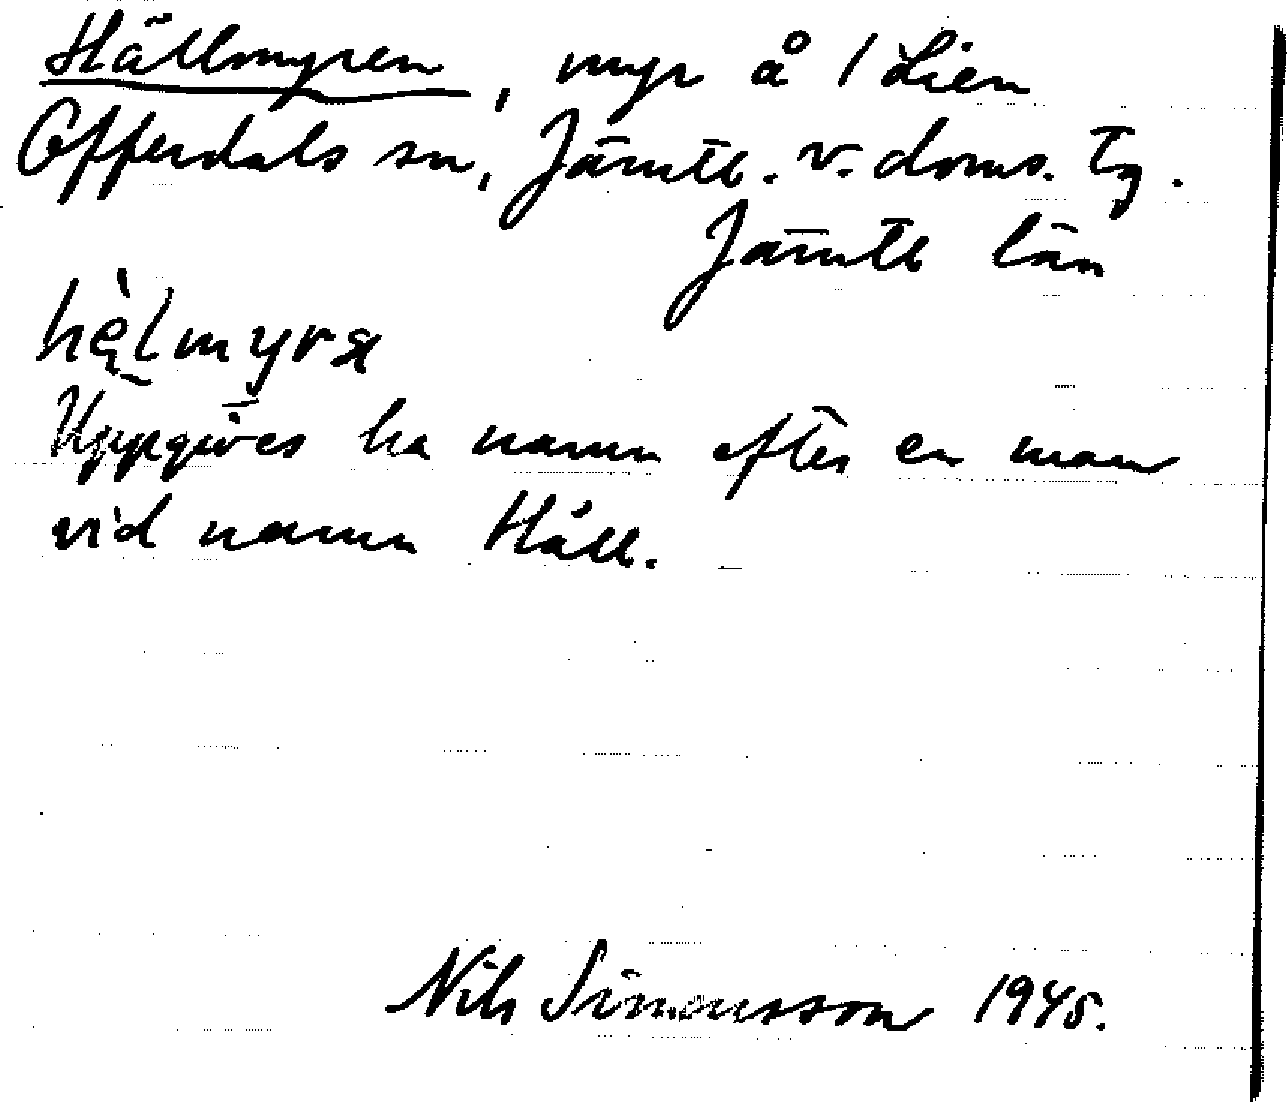 Hällmyren, myr å 1 Lien
Offerdals sn, Jämtl. v. doms. tg.
Jämtl län
hèlmyra
Uppgives ha namn efter en man
vid namn Häll.
Nils Simonsson 1945.